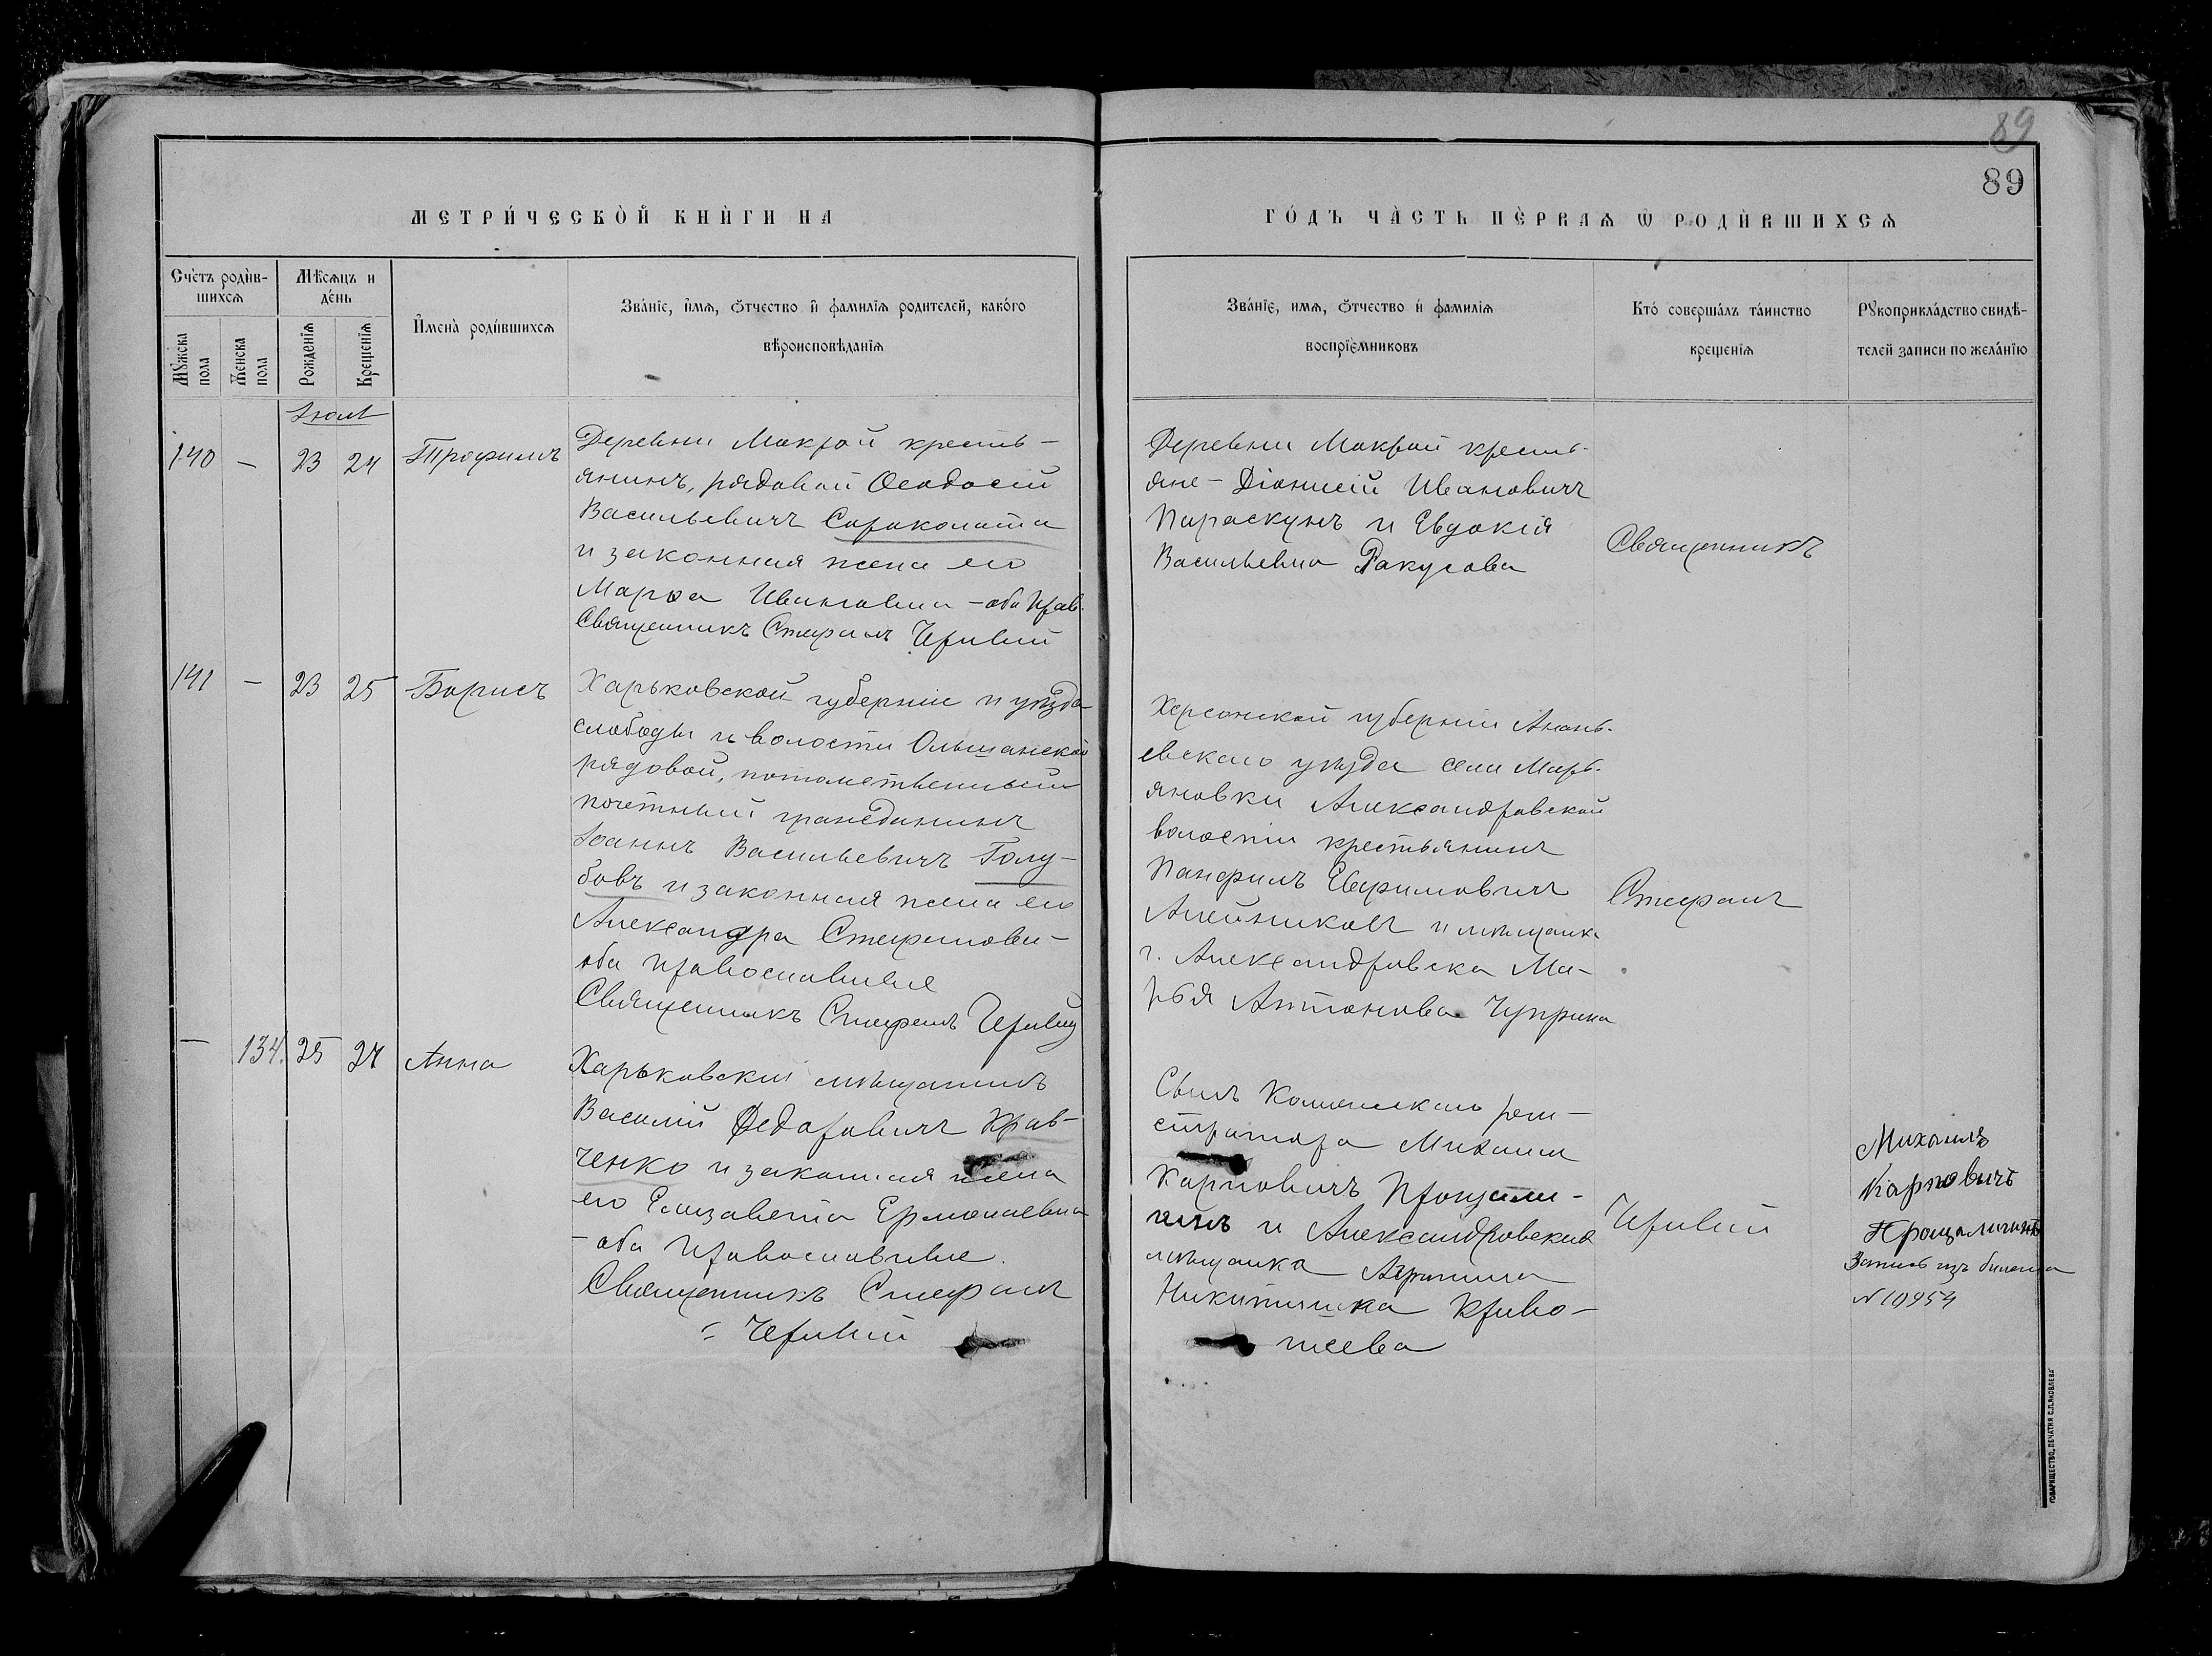 89
89
МЕТРИ́ЧЕСКОЙ КНИ́ГИ НА
ГО́ДЪ ЧА́СТЬ ПЕ́РВАѦ Ѡ РОДИ́ВШИХСѦ
Сче́тъ роди́в-
шихсѧ
Мѣ́сѧцъ и
де́нь
И҆мена̀ роди́вшихсѧ
Зва́нїе, и҆́мѧ, ѻ҆́тчество и҆ фамилїѧ родителей, како́го
вѣроисповѣ́данїѧ
Мꙋ́жска
пола
Же́нска
пола
Рожденїѧ
Крещенїѧ
Зва́нїе, имѧ, ѻ҆́тчество и҆ фамилїѧ
воспрїе́мниковъ
Кто́ соверша́лъ та́инство
креще́нїѧ
Рꙋкоприкла́дство свидѣ́-
телей записи по жела́нїю
Іюль
140 — 23 24 Трофимъ
Деревни Мокрой кресть-
янинъ, рядовой Ѳеодосій
Васильевичъ Сороколата
и законная жена его
Марѳа Ивановна - оба прав.
Священникъ Стефанъ Чернвій
Деревни Мокрой кресть-
яне - Діонисій Ивановичъ
Параскунъ и Евдокія
Васильевна Ракусова
Священникъ
141 — 23 25 Борисъ
Харьковской губерніи и уѣзда
слободы и волости Ольшанской
рядовой, потомственный
почетный гражданинъ
Іоаннъ Васильевичъ Голу-
бовъ и законная жена его
Александра Стефанова -
оба православные
Священникъ Стефанъ
Херсонской губерніи Анань-
евскаго уѣзда села Марь-
яновки Александровской
волости крестьянинъ
Панфилъ Евфимовичъ
Алейниковъ и мѣщанка
г. Александровска Ма-
рья Антонова Чуприна
Стефанъ
— 134. 25 27 Анна
Харьковскій мѣщанинъ
Василій Федоровичъ Крав-
ченко и законная жена
его Елизавета Ермолаевна
- оба православные.
Священникъ Стефанъ
Сынъ Коллежскаго реги-
стратора Михаилъ
Карповичъ Прощали-
гинъ и Александровская
мѣщанка Агрипина
Никитишна Криво-
шеева
Михаилъ
Карповичъ
Запись изъ билета
№ 10954
ТОВАРИЩЕСТВО „ПЕЧАТНЯ С.П.ЯКОВЛЕВА“